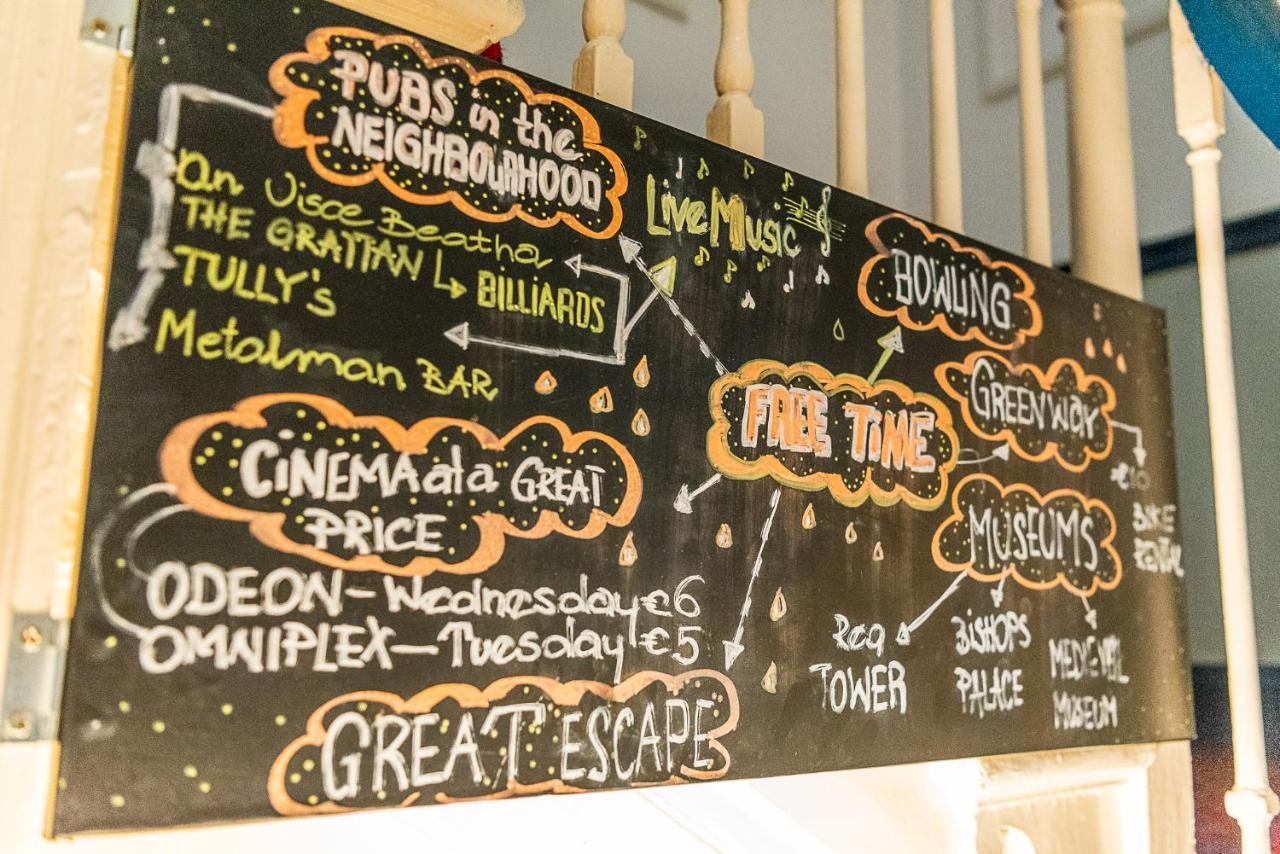 PUBS in the
NEIGHBOURHOOD
An Uisce Beatha
THE GRATTAN
BILLIARDS
TULLY's
Metalman BAR
Live Music
BOWLING
FREE TIME
GREENWAY
BIKE
RENTAL
CINEMA at a GREAT
PRICE
ODEON - Wednesday €6
OMNIPLEX - Tuesday €5
MUSEUMS
Reg
TOWER
BISHOPS
PALACE
MEDIEVEL
MUSEUM
GREAT ESCAPE